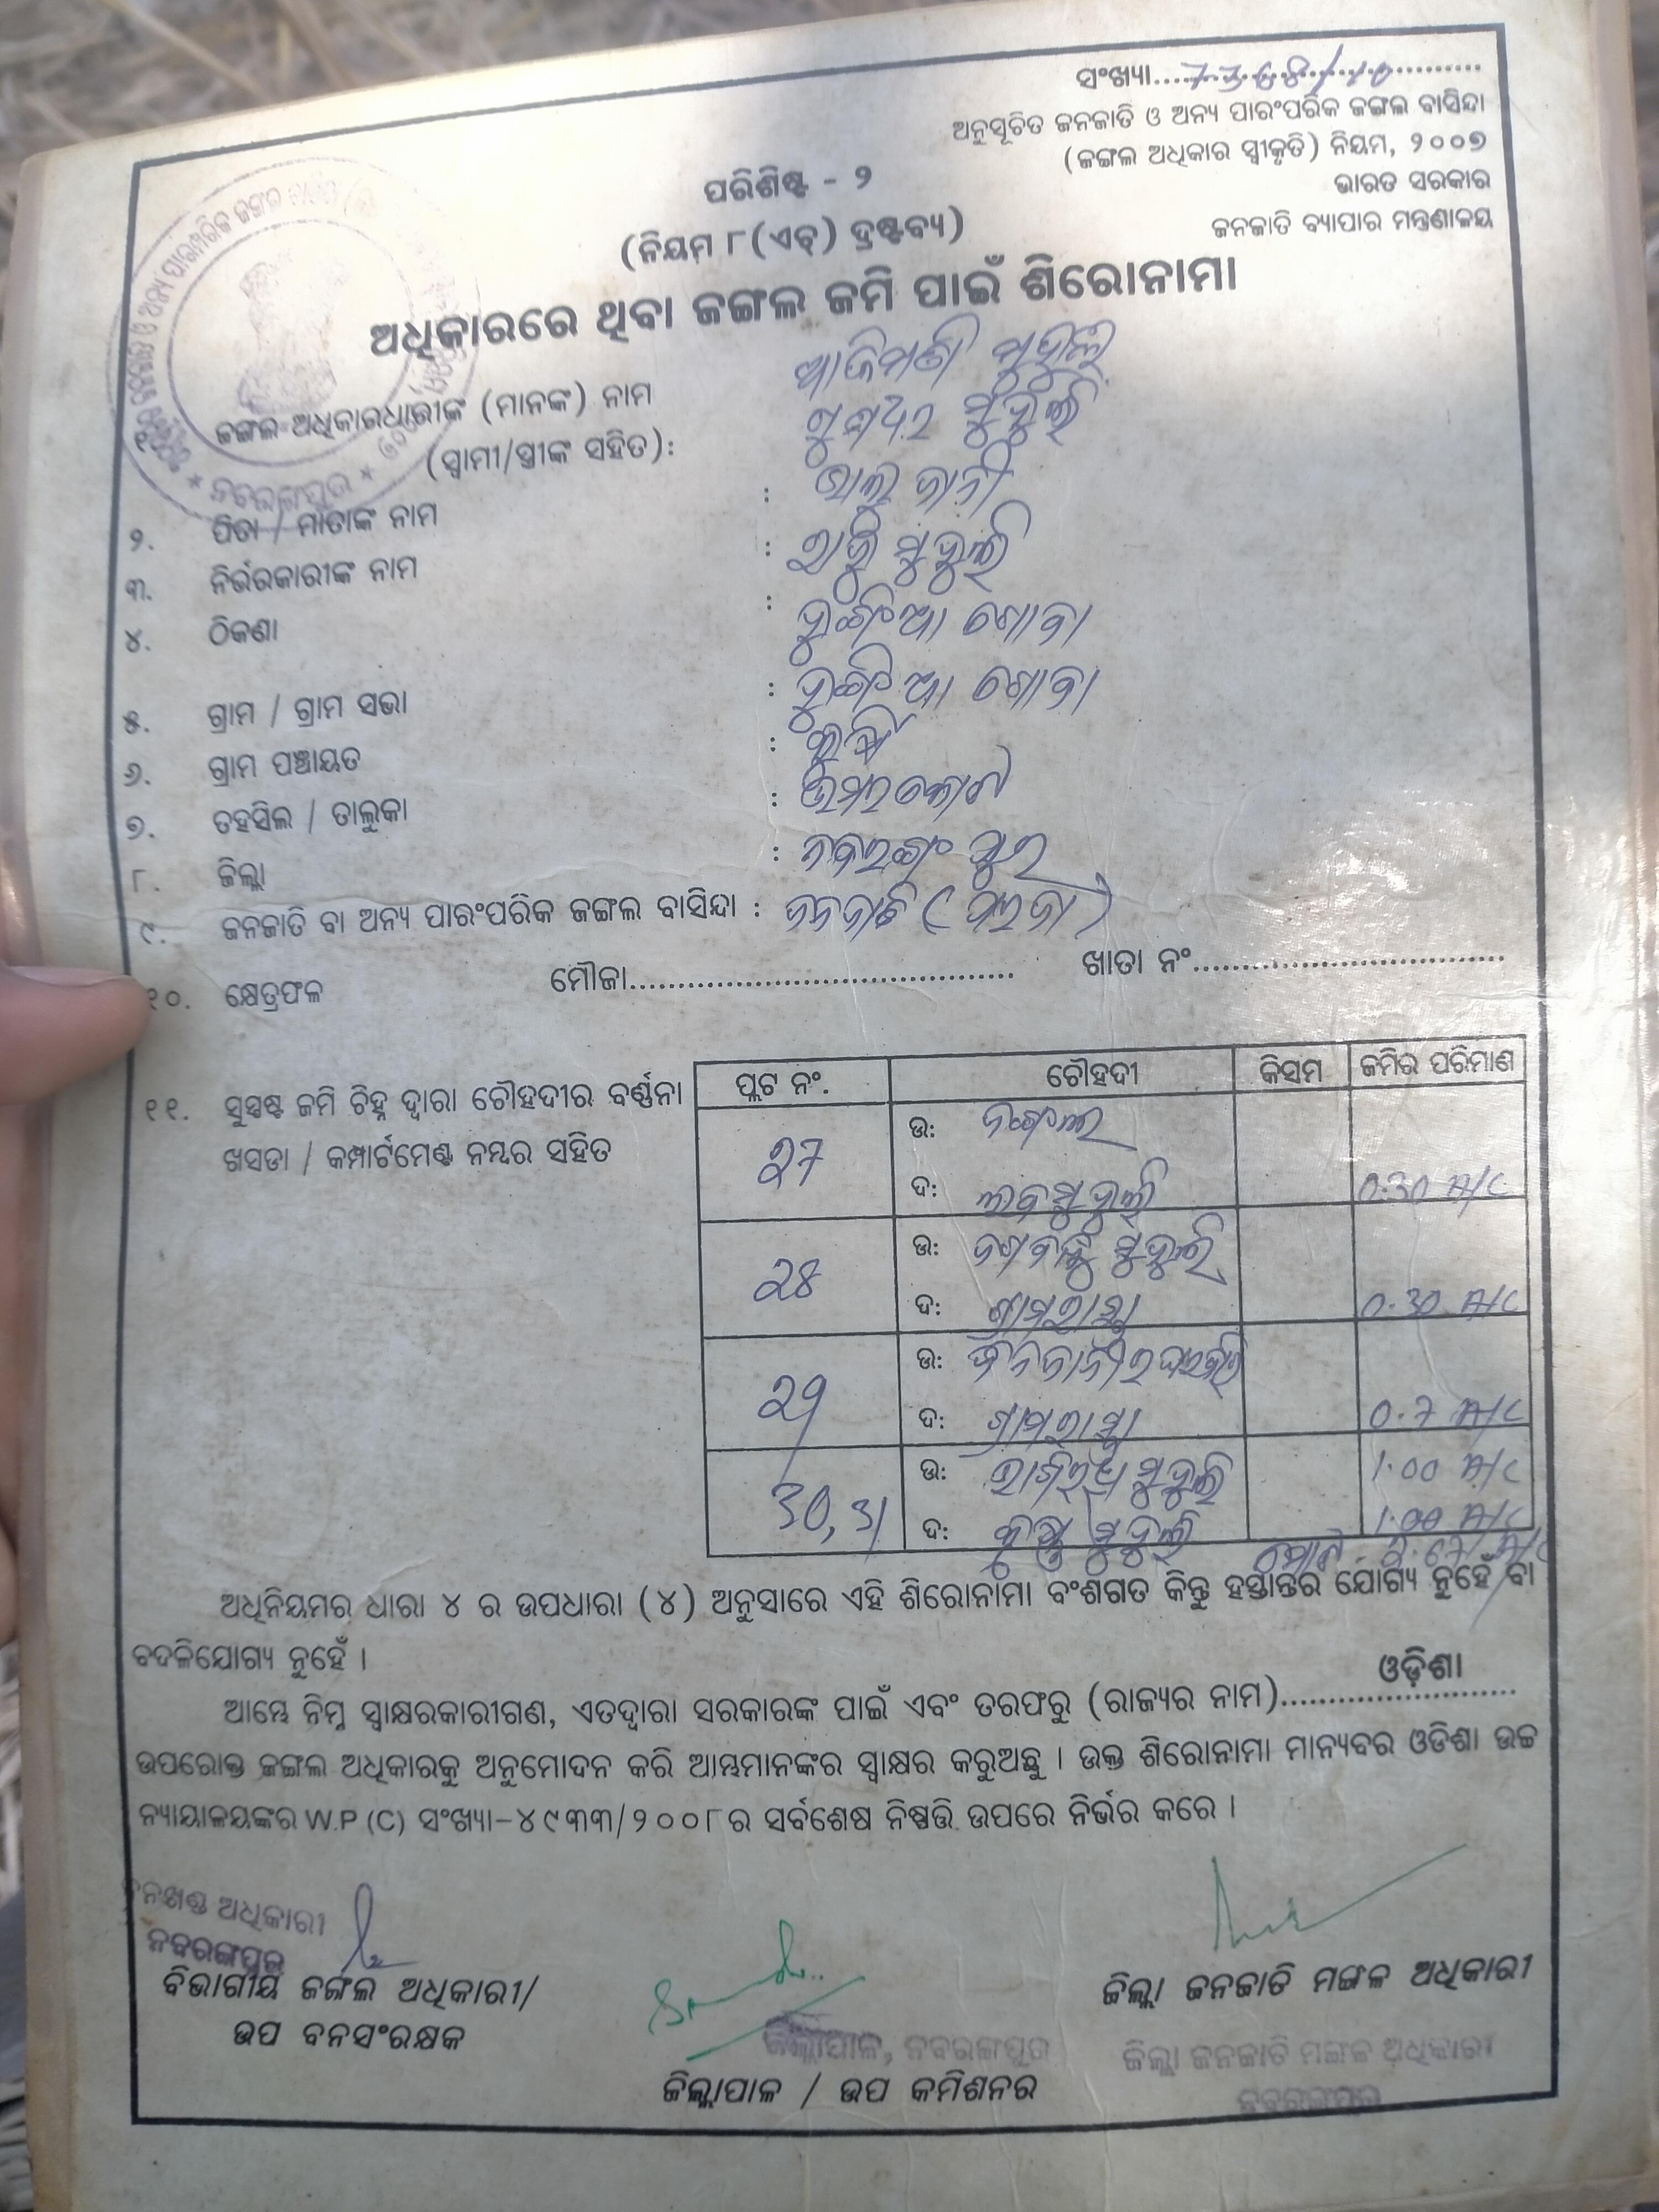 ସଂଖ୍ୟା....7368/10..........
ଅନୁସୂଚିତ ଜନଜାତି ଓ ଅନ୍ୟ ପାରଂପରିକ ଜଙ୍ଗଲ ବାସିନ୍ଦା
(ଜଙ୍ଗଲ ଅଧିକାର ସ୍ୱୀକୃତି) ନିୟମ, ୨୦୦୭
ଭାରତ ସରକାର
ଜନଜାତି ବ୍ୟାପାର ମନ୍ତ୍ରଣାଳୟ
ପରିଶିଷ୍ଟ - ୨
(ନିୟମ ୮(ଏଚ୍) ଦ୍ରଷ୍ଟବ୍ୟ)
ଅଧିକାରରେ ଥିବା ଜଙ୍ଗଲ ଜମି ପାଇଁ ଶିରୋନାମା
୧. ଜଙ୍ଗଲ ଅଧିକାରଧାରୀଙ୍କ (ମାନଙ୍କ) ନାମ ମୁଦୁଲି
(ସ୍ୱାମୀ/ସ୍ତ୍ରୀଙ୍କ ସହିତ): ମୁଦୁଲି
୨. ପିତା / ମାତାଙ୍କ ନାମ : ଜାନୀ
୩. ନିର୍ଭରକାରୀଙ୍କ ନାମ : ମୁଦୁଲି
୪. ଠିକଣା :
୫. ଗ୍ରାମ / ଗ୍ରାମ ସଭା :
୬. ଗ୍ରାମ ପଞ୍ଚାୟତ :
୭. ତହସିଲ / ତାଲୁକା : ଉମରକୋଟ
୮. ଜିଲ୍ଲା : ନବରଙ୍ଗପୁର
୯. ଜନଜାତି ବା ଅନ୍ୟ ପାରଂପରିକ ଜଙ୍ଗଲ ବାସିନ୍ଦା : ଜନଜାତି (ପରଜା)
୧୦. କ୍ଷେତ୍ରଫଳ ମୌଜା........................ ଖାତା ନଂ........................
୧୧. ସୁସ୍ପଷ୍ଟ ଜମି ଚିହ୍ନ ଦ୍ୱାରା ଚୌହଦୀର ବର୍ଣ୍ଣନା
ଖସଡା / କମ୍ପାର୍ଟମେଣ୍ଟ ନମ୍ବର ସହିତ
ପ୍ଲଟ ନଂ. ଚୌହଦୀ କିସମ ଜମିର ପରିମାଣ
27 ଉ: ଜଙ୍ଗଲ
ଦ: ମୁଦୁଲି 0.30 A/C
28 ଉ: ଜଗବନ୍ଧୁ ମୁଦୁଲି
ଦ: ଗ୍ରାମରାସ୍ତା 0.30 A/C
29 ଉ:
ଦ: ଗ୍ରାମରାସ୍ତା 0.7 A/C
30, 31 ଉ: ମୁଦୁଲି 1.00 A/C
ଦ: ମୁଦୁଲି 1.00 A/C
ମୋଟ
ଅଧିନିୟମର ଧାରା ୪ ର ଉପଧାରା (୪) ଅନୁସାରେ ଏହି ଶିରୋନାମା ବଂଶଗତ କିନ୍ତୁ ହସ୍ତାନ୍ତର ଯୋଗ୍ୟ ନୁହେଁ ବା
ବଦଳିଯୋଗ୍ୟ ନୁହେଁ ।
ଆମ୍ଭେ ନିମ୍ନ ସ୍ୱାକ୍ଷରକାରୀଗଣ, ଏତଦ୍ୱାରା ସରକାରଙ୍କ ପାଇଁ ଏବଂ ତରଫରୁ (ରାଜ୍ୟର ନାମ)........ଓଡ଼ିଶା........
ଉପରୋକ୍ତ ଜଙ୍ଗଲ ଅଧିକାରକୁ ଅନୁମୋଦନ କରି ଆମ୍ଭମାନଙ୍କର ସ୍ୱାକ୍ଷର କରୁଅଛୁ । ଉକ୍ତ ଶିରୋନାମା ମାନ୍ୟବର ଓଡିଶା ଉଚ୍ଚ
ନ୍ୟାୟାଳୟଙ୍କର W.P (C) ସଂଖ୍ୟା-୪୯୩୩/୨୦୦୮ର ସର୍ବଶେଷ ନିଷ୍ପତ୍ତି ଉପରେ ନିର୍ଭର କରେ ।
ବନଖଣ୍ଡ ଅଧିକାରୀ
ନବରଙ୍ଗପୁର
ବିଭାଗୀୟ ଜଙ୍ଗଲ ଅଧିକାରୀ/
ଉପ ବନସଂରକ୍ଷକ
ଜିଲ୍ଲାପାଳ, ନବରଙ୍ଗପୁର
ଜିଲ୍ଲାପାଳ / ଉପ କମିଶନର
ଜିଲ୍ଲା ଜନଜାତି ମଙ୍ଗଳ ଅଧିକାରୀ
ଜିଲ୍ଲା ଜନଜାତି ମଙ୍ଗଳ ଅଧିକାରୀ
ନବରଙ୍ଗପୁର